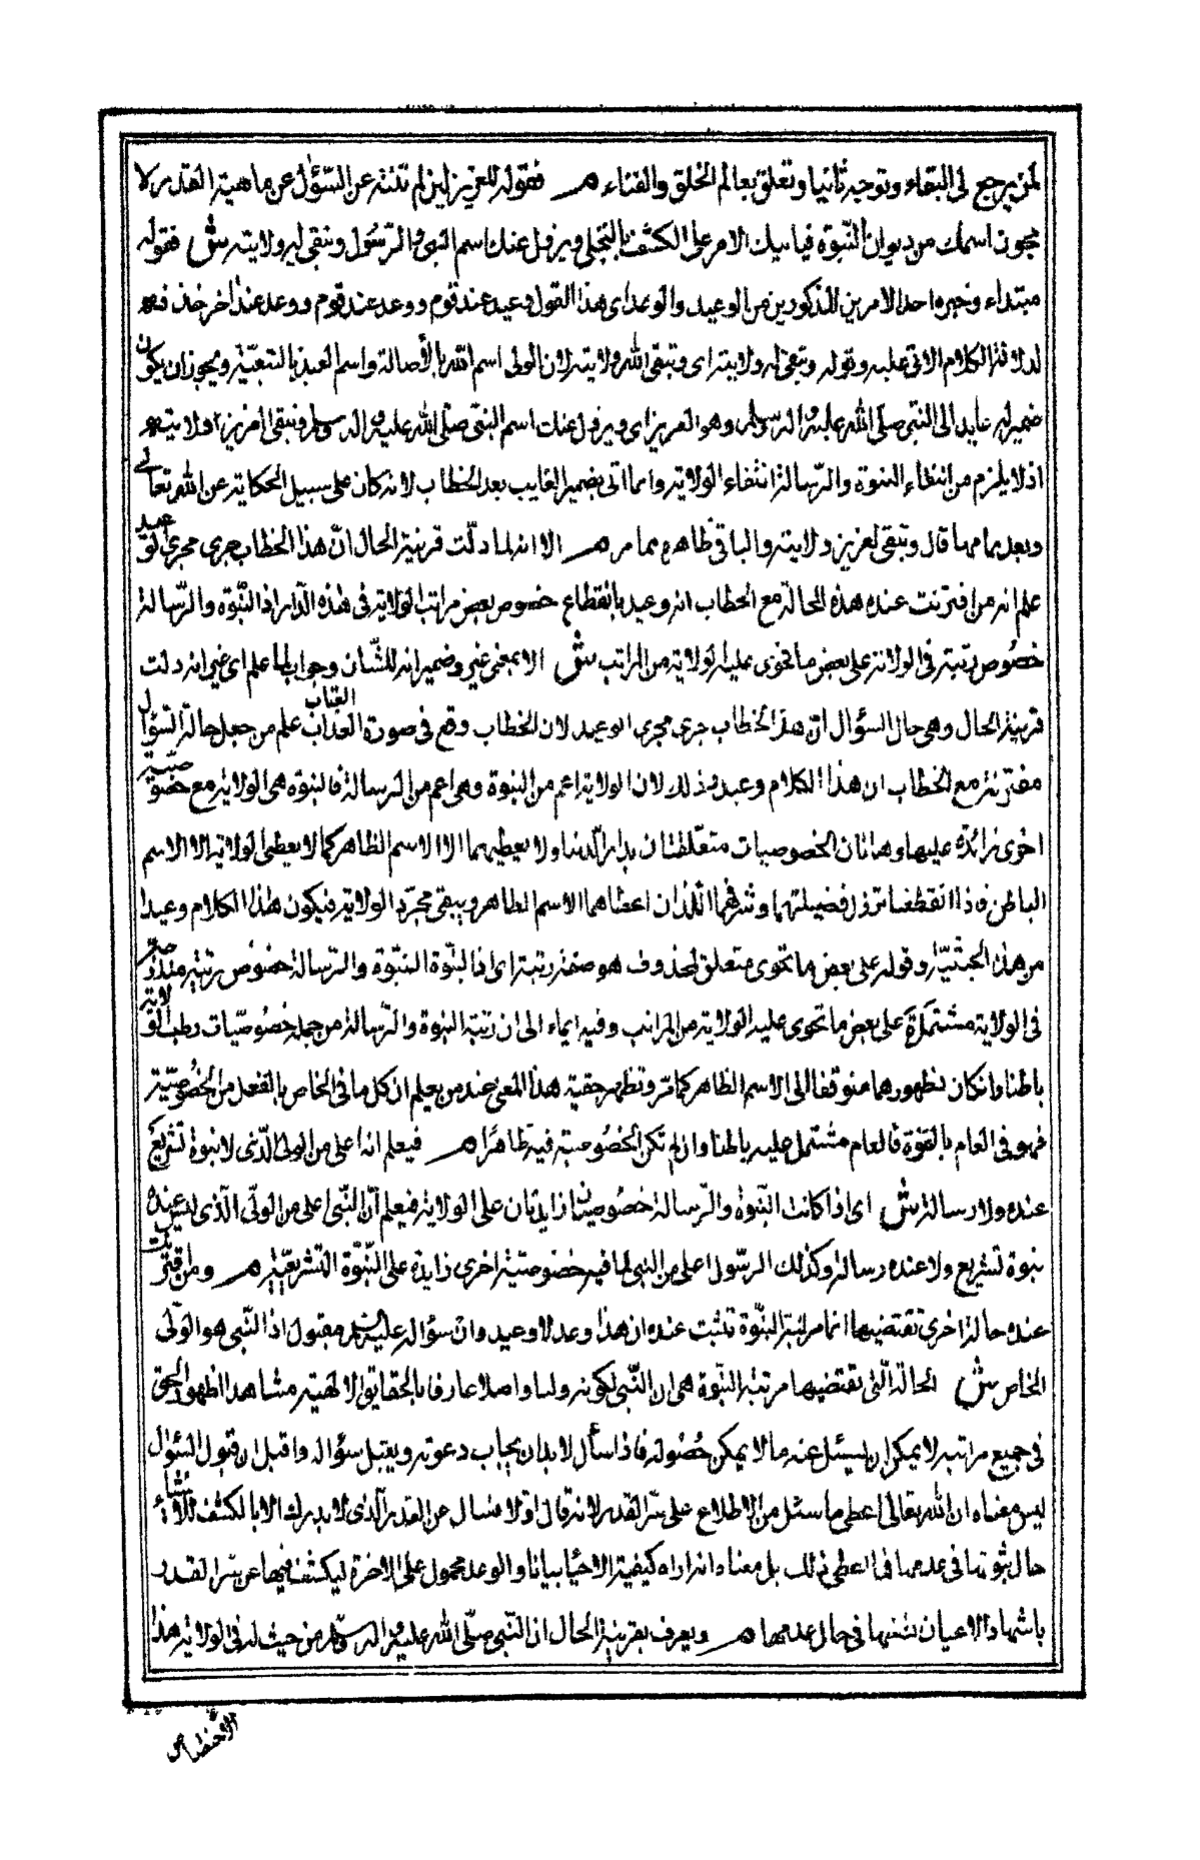 لمن يرجع لى البقاء وتوجه ثانيا وتعلق بعالم الخلق والفناء م فقوله للعزيز لئن لم تنته عن السؤال عن ماهية القدر لا
محون اسمك من ديوان النبوة فياتيك الامر على الكشف بالتجلى ويزول عنك اسم النبى والرسول وتبقى له ولايته ش فقوله
مبتداء وخبره احد الامرين المذكورين من الوعيد والوعد اى هذا القول وعيد عند قوم ووعد عند قوم ووعد عند اخر حذف
لدلالة الكلام الاتى عليه وقوله وتبقى له ولايته اى وتبقى الله ولايته لان الولى اسم الله بالأصالة واسم العبد بالتبعيّة ويجوز ان يكون
ضمير له عايد الى النبى صلى الله عليه واله وسلم وهو العزيز اى ويزول عنك اسم النبى صلى الله عليه واله وسلم وتبقى العزيز ولايته
اذ لا يلزم من انتفاء النبوة والرسالة انتفاء الولاية وانما اتى بضمير الغايب بعد الخطاب لانه كان على سبيل الحكاية عن الله تعالى
وبعد تمامها قال وتبقى لعزيز ولايته والباقى ظاهر مما مر م الا انه لما دلت قرينة الحال ان هذا الخطاب جرى مجرى الوعيد
علم انه من اقترنت عنده هذه الحالة مع الخطاب انه وعيد بانقطاع خصوص بعض مراتب الولاية فى هذه الدار اذ النبوة والرسالة
خصوص رتبة فى الولاية على بعض ما تحوى عليه الولاية من المراتب ش الا بمعنى غير وضمير انه للشان وجواب لما علم اى غير انه دلت
قرينة الحال وهى حال السؤال ان هذا الخطاب جرى مجرى الوعيد لان الخطاب وقع فى صورة العذاب العتاب علم من جعل حالة السؤال
مقترنة مع الخطاب ان هذا الكلام وعيد وذلك لان الولاية اعم من النبوة وهى اعم من الرسالة فالنبوة هى الولاية مع خصوصية
اخرى زائدة عليها وهاتان الخصوصيات متعلقتان بدار الدنيا ولا يعطيهما الا الاسم الظاهر كما لا يعطى الولاية الا الاسم
الباطن فاذا انقطعتا تزول فضيلتهما وشرفهما اللذان اعطاهما الاسم الظاهر ويبقى مجرد الولاية فيكون هذا الكلام وعيدا
من هذه الحيثية وقوله على بعض ما تحوى متعلق لمحذوف هو صفة رتبة اى اذ النبوة النبوة والرسالة خصوص رتبة مندرجة
فى الولاية مشتملة على بعض ما تحوى عليه الولاية من المراتب وفيه ايماء الى ان رتبة النبوة والرسالة من جملة خصوصيات رطب الولاية
باطنا وان كان ظهورهما متوقفا الى الاسم الظاهر كما مر وتظهر حقية هذا المعنى عند من يعلم ان كل ما فى الخاص بالفعل من الخصوصيّة
فهو فى العام بالقوة فالعام مشتمل عليه باطنا وان لم تكن الخصوصية فيه ظاهرًا م فيعلم انه اعلى من الولى الذى لا نبوة تشريع
عنده ولا رسالة ش اى اذا كانت النبوة والرسالة خصوصيتان زايدتان على الولاية فيعلم ان النبى اعلى من الولى الذى ليس عنده
نبوة تشريع ولا عنده رسالة وكذلك الرسول اعلى من النبى لما فيه خصوصيّة اخرى زايدة على النبوة التشريعية م ومن اقترنت
عنده حالة اخرى تقتضيها انما مرتبة النبوة تثبت عنده ان هذا وعد لا وعيد وان سؤاله عليه السلم مقبول اذ النبى هو الولى
الخاص ش الحالة التى تقتضيها مرتبة النبوة هى ان النبى لكونه وليا واصلا عارفا بالحقايق الالهية مشاهدا لظهور الحق
فى جميع مراتبه لا يمكن ان يسئل عنه ما لا يمكن حصوله فاذا سأل لا بد ان يجاب دعوته ويقبل سؤاله واقبل ان قبول السئوال
ليس معناه ان الله تعالى اعطى ما سئل من الاطلاع على سر القدر لانه قال اولا فسال عن القدر الذى لا يدرك الا بالكشف للاشياء
حال ثبوتها فى عدمها فما اعطى ذلك بل معناه انه اراه كيفية الاحيا بيانا والوعد محمول على الاخرة ليكشف فيها عن سر القدر
باشهاد الاعيان نفسها فى حال عدمها م ويعرف بقرينة الحال ان النبى صلى الله عليه واله وسلم من حيث له فى الولاية هذا
الاختصاص